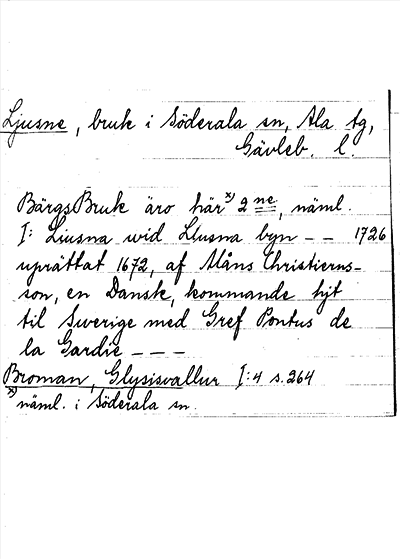 Ljusne, bruk i Söderala sn, Ala tg,
Gävleb. l.
BärgsBruk äro här x) 2 ne, näml.
I: Liusna wid Llusna byn - - 1726
uprättat 1672, af Måns Christierns-
son, en Dansk, kommande hjt
til Swerige med Gref Pontus de
la Gardie - - -
Broman, Glysisvallur I:4 s. 264
x) näml. i Söderala sn.